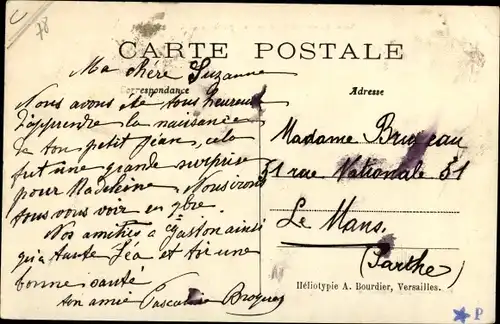 78
CARTE POSTALE
Correspondance
Adresse
Ma chère Suzanne
Nous avons été tous heureux
d'apprendre la naissance
de ton petit Jean, cela
fut une grande surprise
pour Madeleine. Nous irons
tous vous voir en 9bre.
Nos amitiés à Gaston ainsi
qu'à tante Léa et toi une
bonne santé
ton amie Pascaline
Madame
51 rue Nationale 51
Le Mans.
(Sarthe)
Héliotypie A. Bourdier, Versailles.
P